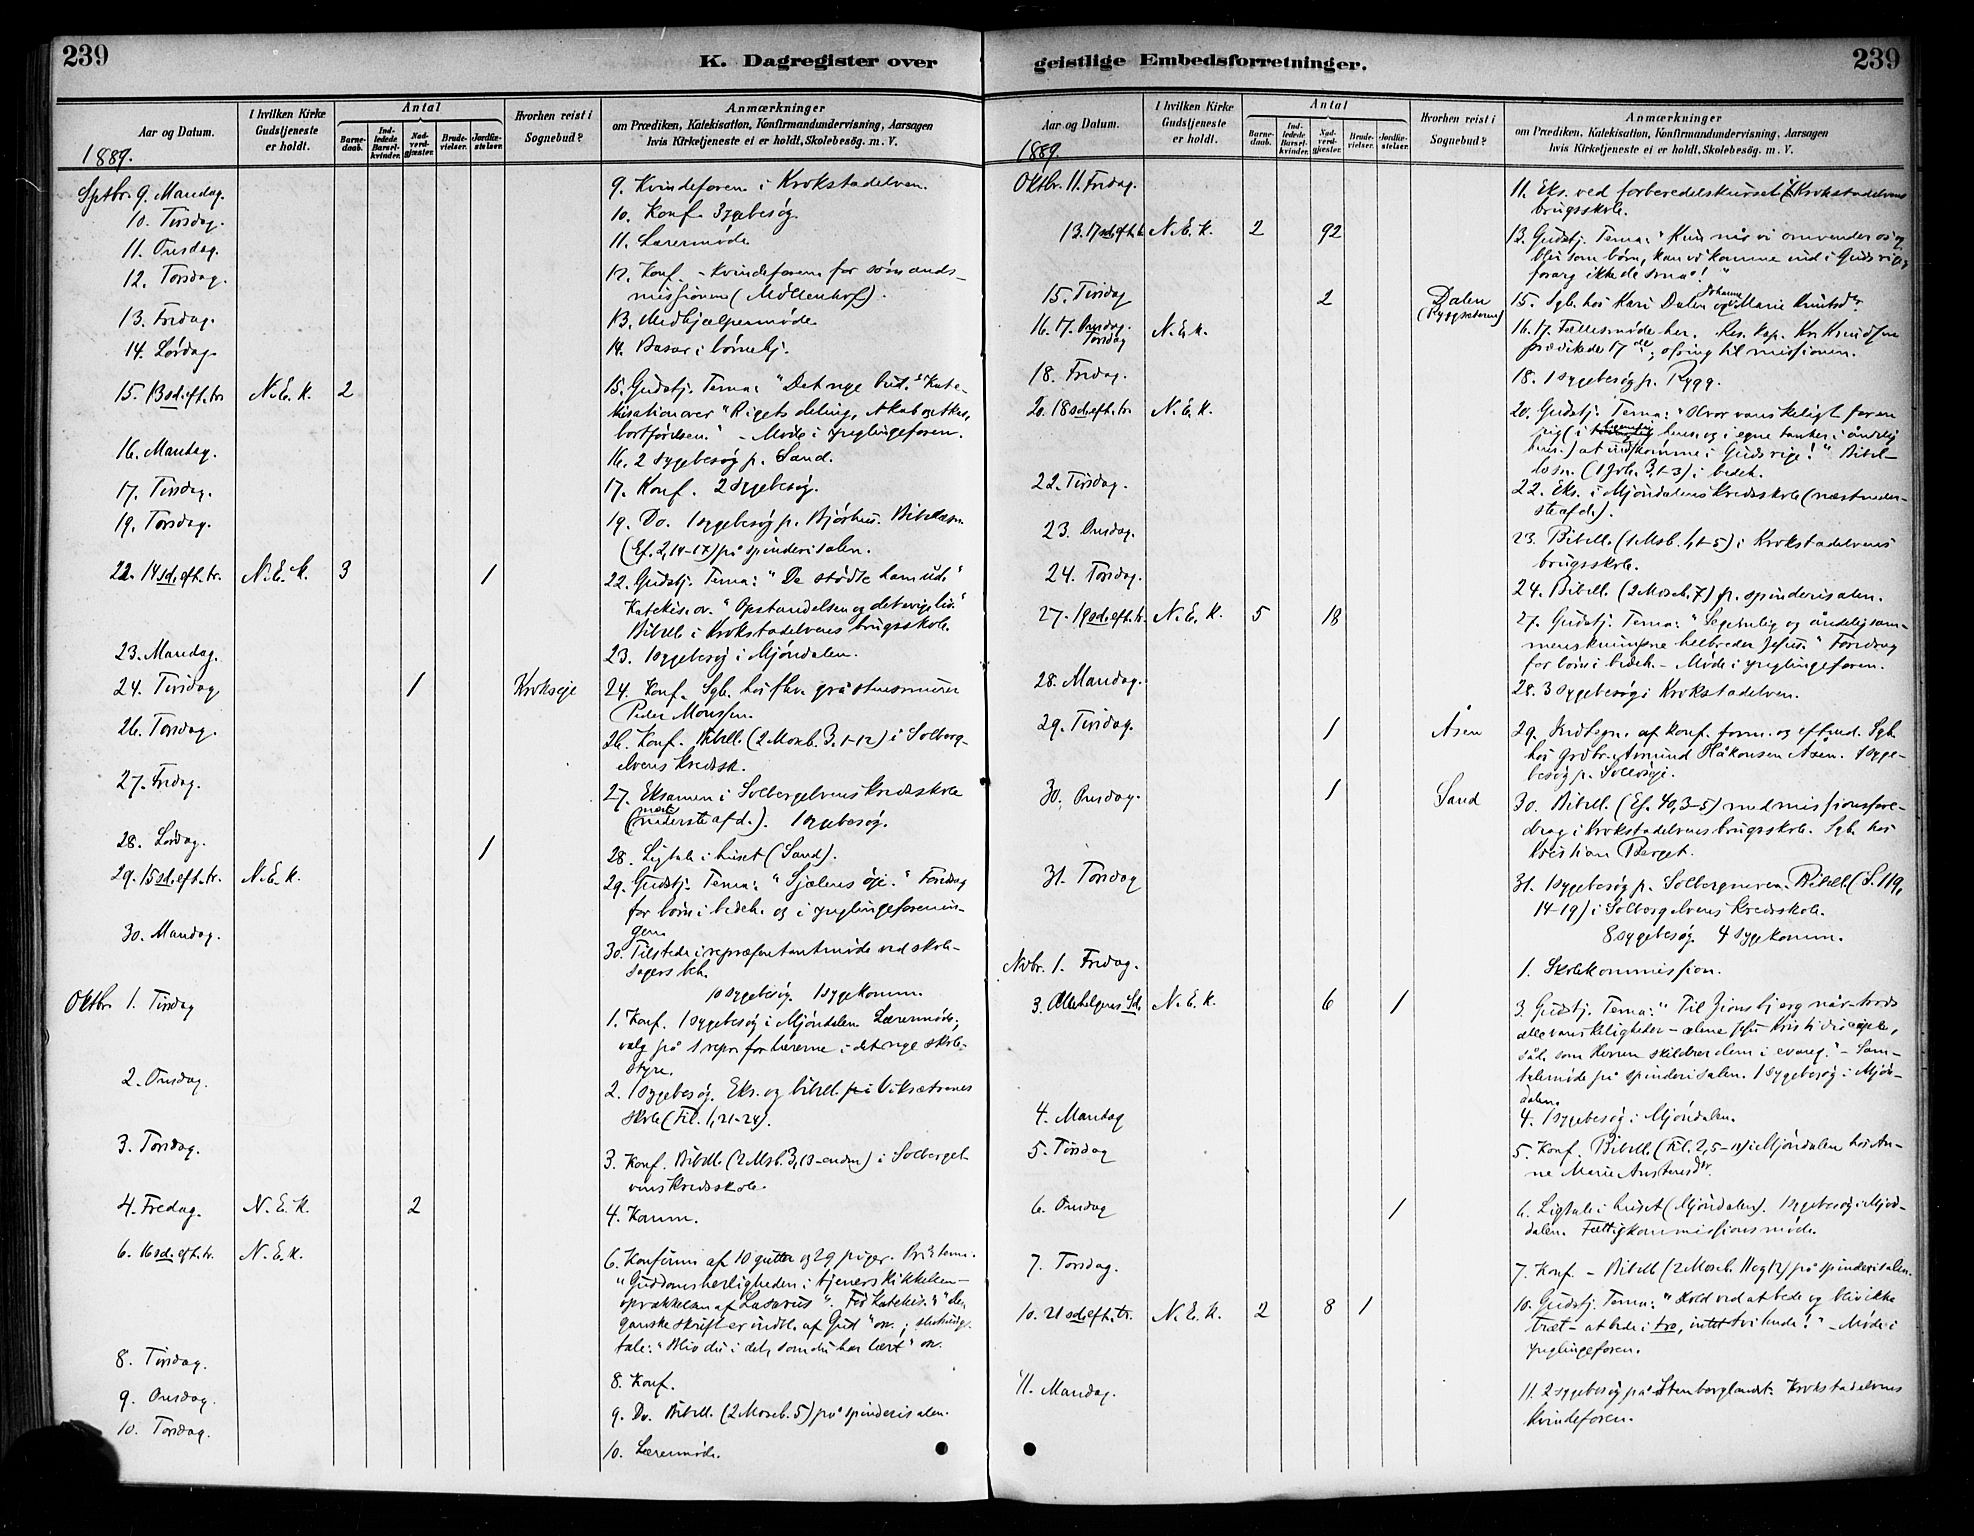 239
K. Dagregister over
Aar og Datum.
I hvilken Kirke Gudstjeneste er holdt.
Antal
Barne-daab.
Ind-ledede Barsel-kvinder.
Nad-verd-gjæster.
Brude-vielser.
Jordfæ-stelser.
Hvorhen reist i Sognebud?
Anmærkninger
om Prædiken, Katekisation, Konfirmandundervisning, Aarsagen
hvis Kirketjeneste ei er holdt, Skolebesög. m. V.
1889.
Sptbr. 9. Mandag. 9. Kvindeforen i Krokstadelven.
10. Tirsdag. 10. Konf. 3 sygebesøg.
11. Onsdag. 11. Lærermøde
12. Torsdag. 12. Konf. - Kvindeforen for sømands-
missionen (Møllenhof).
13. Fredag. 13. Medhjælpermøde
14. Lørdag. 14. Basar i
15. 13 sd. eft. tr. N. E. K. 2 15. Gudstj. Tema: "Det nye bud." Kate-
kisation over "Rigets deling, Akab og
bortførelsen." - Møde i ynglingeforen.
16. Mandag. 16. 2 sygebesøg p. Sand.
17. Tirsdag. 17. Konf. 2 sygebesøg.
19. Torsdag. 19. Do. 1 sygebesøg p. Bjørhus. Bibellæsn.
(Ef. 2, 14-17) på spinderisalen.
22. 14 sd. eft. tr. N. E. K. 3 1 22. Gudstj. Tema: "De stødte ham ud."
Katekis. ov. "Opstandelsen og det evige liv."
Bibell. i Krokstadelvens brugsskole.
23. Mandag. 23. 1 sygebesøg i Mjøndalen.
24. Tirsdag 1 Krokseje 24. Konf. Sgb. hos fhv. gråstensmurer
Peder Monssen.
26. Torsdag. 26. Konf. Bibell. (2 Moseb. 3, 1-12) i Solberg-
elvens kredssk.
27. Fredag. 27. Eksamen i Solbergelvens kredsskole
(næst nederste afd.). 1 sygebesøg.
28. Lørdag. 1 28. Ligtale i huset (Sand).
29. 15 sd. eft. tr. N. E. K. 29. Gudstj. Tema: "Sjælens øje." Foredrag
for børn i bedeh. og i ynglingeforenin-
gen.
30. Mandag. 30. Tilstede i repræsentantmøde ved skole-
sagers beh.
10 sygebesøg. 1 sygekomm.
Oktbr. 1. Tirsdag 1. Konf. 1 sygebesøg i Mjøndalen Lærermøde;
valg på 1 repr. for lærerne i det nye skole-
styre.
2. Onsdag. 2. 1 sygebesøg. Eks. og bibell. i Viksætrenes
skole (Fil. 1, 21-24).
3. Torsdag. 3. Konf. Bibell. (2 Msb. 3, 13-enden) i Solbergel-
vens kredsskole.
4. Fredag. N. E. K. 2 4. Komm.
6. 16 sd. eft. tr. N. E. K. 6. Konfirm. af 10 gutter og 29 piger.
"Guddomsherligheden i tjenerskikkelsen -
opvækkelsen af Lasarus". Kateki
ganske skrift er indbl. af Gud" ov.;
tale: "Bliv du i det, som du har lært" ov.
8. Tirsdag. 8. Konf.
9. Onsdag. 9. Do. Bibell. (2 Moseb. 5) på spinderisalen.
10. Torsdag. 10. Lærermøde.
geistlige Embedsforretninger.
239
Aar og Datum.
I hvilken Kirke Gudstjeneste er holdt.
Antal
Barne-daab.
Ind-ledede Barsel-kvinder.
Nad-verd-gjæster.
Brude-vielser.
Jordfæ-stelser.
Hvorhen reist i Sognebud?
Anmærkninger
om Prædiken, Katekisation, Konfirmandundervisning, Aarsagen
hvis Kirketjeneste ei er holdt, Skolebesög. m. V.
1889.
Oktbr. 11. Fredag. 11. Eks. ved forberedelseskurset i Krokstadelvens
brugsskole.
13. 17 sd. eft. tr. N. E. K. 2 92 13. Gudstj. Tema: "Kun når vi omvender os og
bli som børn, kan vi komme ind i Guds rige;
forarg ikke de små!"
15. Tirsdag 2 Dalen 15. Sgb. hos Kari Dalen og Johanne Marie Knutsdr.
(Ryggsæteren)
16. 17. Onsdag. Torsdag N. E. K. 16. 17. Fællesmøde her. Res. kap. Kr. Knudsen
prædikede 17de, ofring til missionen.
18. Fredag. 18. 1 sygebesøg p. Rygg.
20. 18 sd. eft. tr. N. E. K. 20. Gudstj. Tema: "Hvor vanskeligt for en
rig (i henseende og i egne tanker i åndelig
hens.) at indkomme i Guds rige!" Bibel-
læsn. (1 Joh. 3, 1-3) i bedeh.
22. Tirsdag. 22. Eks. i Mjøndalens kredsskole (næst neder-
ste afd.).
23. Onsdag. 23. Bibell. (1 Msb. 4, 1-5) i Krokstadelvens
brugsskole.
24. Torsdag. 24. Bibell. (2 Moseb. 7) p. spinderisalen.
27. 19 sd. eft. tr. N. E. K. 5 18 27. Gudstj. Tema: "Legemlig og åndelig
helbreder Jesus." Foredrag
for børn i bedeh. - Møde i ynglingeforen.
28. Mandag. 28. 3 sygebesøg i Krokstadelven.
29. Tirsdag. 1 Åsen 29. Indtegn. af konf. form. og efterm. Sgb.
hos grdbr. Amund Håkonsen Åsen. 1 syge-
besøg p.
30. Onsdag. 1 Sand 30. Bibell. (Ef. 40, 3-5) med missionsfore-
drag i Krokstadelvens brugsskole. Sgb. hos
Kristian Berget.
31. Torsdag 31. 1 sygebesøg p. Solbergmoen. Bibell. (S. 119,
14-19) i Solbergelvens kredsskole.
8 sygebesøg. 4 sygekomm.
Novbr. 1. Fredag. 1. Skolekommission.
3. Allehelgens sd. N. E. K. 6 1 3. Gudstj. Tema: "Til Zions bjerg når trods
alle vanskeligheder - alene Jesu Kristi disciple,
såd. som Herren skildrer dem i evang." - Sam-
talemøde på spinderisalen. 1 sygebesøg i Mjøn-
dalen.
4. Mandag 4. 1 sygebesøg i Mjøndalen.
5. Tirsdag 5. Konf. Bibell. (Fil. 2, 5-11) i Mjøndalen hos An-
ne Marie
6. Onsdag 1 6. Ligtale i huset (Mjøndalen). 1 sygebesøg i Mjøn-
dalen. Fattigkommissionsmøde.
7. Torsdag. 7. Konf. - Bibell. (2 Moseb. 11 og 12) på spinderisalen.
10. 21 sd. eft. tr. N. E. K. 2 8 1 10. Gudstj. Tema: "Hold ved at bede og bliv ikke
træt - at bede i tro, intet tvilende!" - Møde i
ynglingeforen.
11. Mandag. 11. 2 sygebesøg på Stenberglandet. Krokstadelvens
kvindeforen.